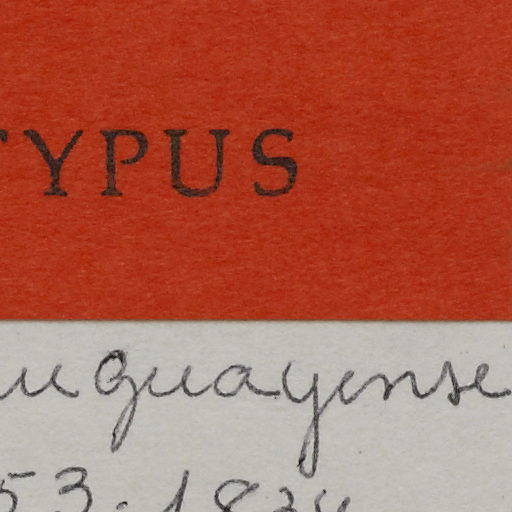 TYPUS
uguayense
53. 1834